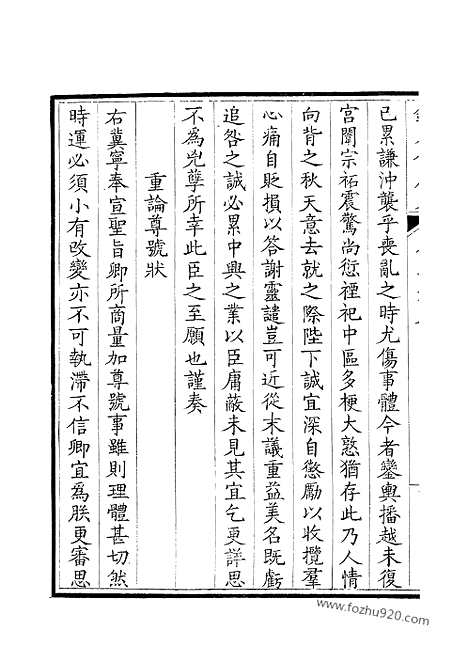 已累謙沖襲乎喪亂之時尤傷事體今者鑾輿播越未復
宮闈宗祏震驚尚愆禋祀中區多梗大憝猶存此乃人情
向背之秋天意去就之際陛下誠宜深自懲勵以收攬羣
心痛自貶損以答謝靈譴豈可近從末議重益美名既虧
追咎之誠必累中興之業以臣庸蔽未見其宜乞更詳思
不為兇孽所幸此臣之至願也謹奏
重論尊號狀
右冀寧奉宣聖旨卿所商量加尊號事雖則理體甚切然
時運必須小有改變亦不可執滯不信卿宜為朕更審思
www.fozhu920.com